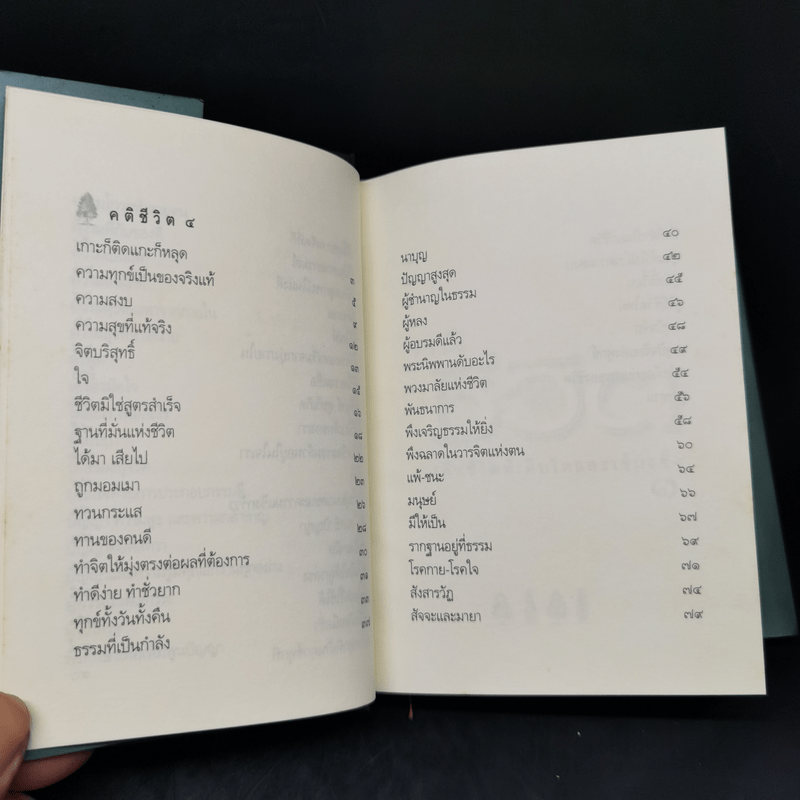 คติชีวิต ๔
เกาะก็ติดแกะก็หลุด ๓
ความทุกข์เป็นของจริงแท้ ๕
ความสงบ ๙
ความสุขที่แท้จริง ๑๒
จิตบริสุทธิ์ ๑๓
ใจ ๑๕
ชีวิตมิใช่สูตรสำเร็จ ๑๖
ฐานที่มั่นแห่งชีวิต ๑๘
ได้มา เสียไป ๒๒
ถูกมอมเมา ๒๓
ทวนกระแส ๒๖
ทานของคนดี ๒๘
ทำจิตให้มุ่งตรงต่อผลที่ต้องการ ๓๐
ทำดีง่าย ทำชั่วยาก ๓๑
ทุกข์ทั้งวันทั้งคืน ๓๓
ธรรมที่เป็นกำลัง ๓๗
นาบุญ ๔๐
ปัญญาสูงสุด ๔๒
ผู้ชำนาญในธรรม ๔๕
ผู้หลง ๔๖
ผู้อบรมดีแล้ว ๔๘
พระนิพพานดับอะไร ๔๙
พวงมาลัยแห่งชีวิต ๕๔
พันธนาการ ๕๖
พึงเจริญธรรมให้ยิ่ง ๕๘
พึงฉลาดในวารจิตแห่งตน ๖๐
แพ้-ชนะ ๖๔
มนุษย์ ๖๖
มีให้เป็น ๖๗
รากฐานอยู่ที่ธรรม ๖๙
โรคกาย-โรคใจ ๗๑
สังสารวัฏ ๗๔
สัจจะและมายา ๗๙